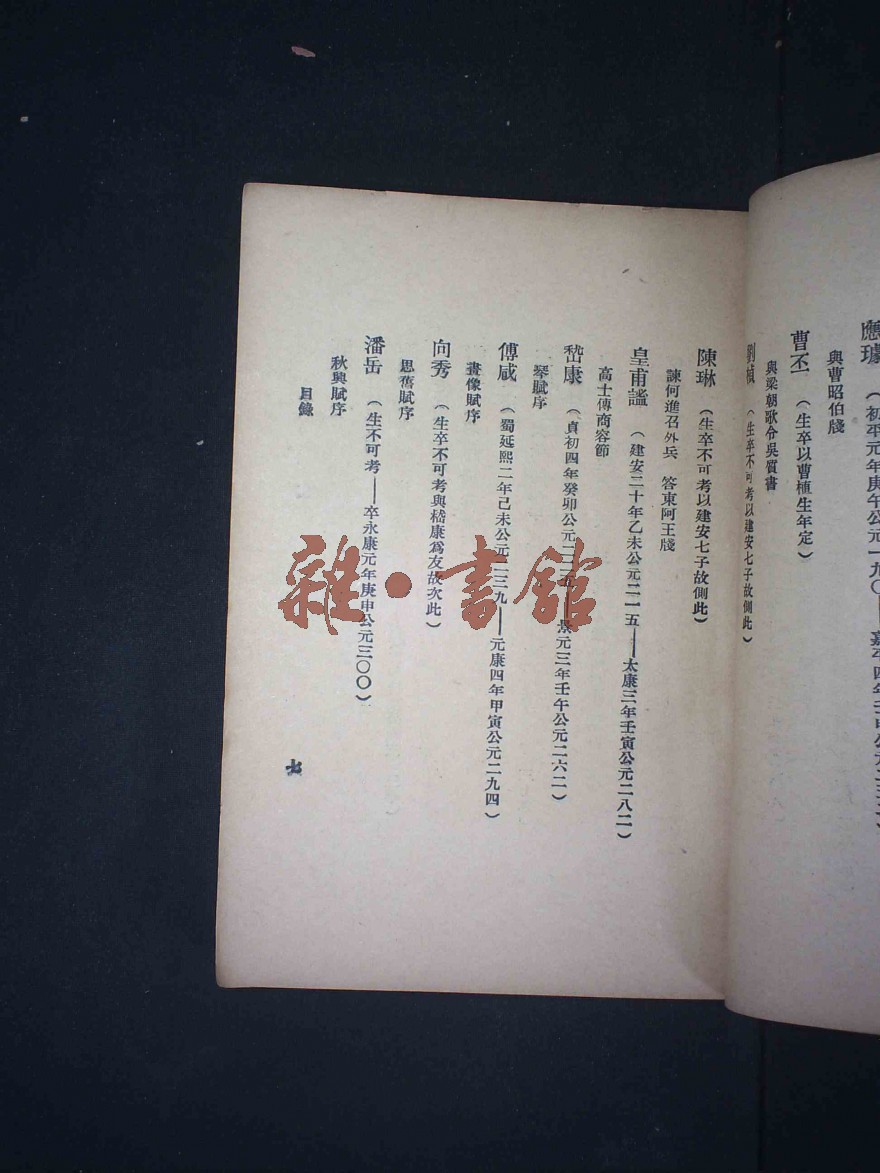 應璩（初平元年庚午公元一九〇——嘉平四年壬申公元二五二）
與曹昭伯牋
曹丕（生卒以曹植生年定）
與梁朝歌令吳質書
劉楨（生卒不可考以建安七子故側此）
陳琳（生卒不可考以建安七子故側此）
諫何進召外兵　答東阿王牋
皇甫謐（建安二十年乙未公元二一五——太康三年壬寅公元二八二）
高士傳商容節
嵇康（貞初四年癸卯公元二二——景元三年壬午公元二六二）
琴賦序
傅咸（蜀延熙二年己未公元二三九——元康四年甲寅公元二九四）
畫像賦序
向秀（生卒不可考與嵇康爲友故次此）
思舊賦序
潘岳（生不可考——卒永康元年庚申公元三〇〇）
秋興賦序
目錄
七
雜·書館